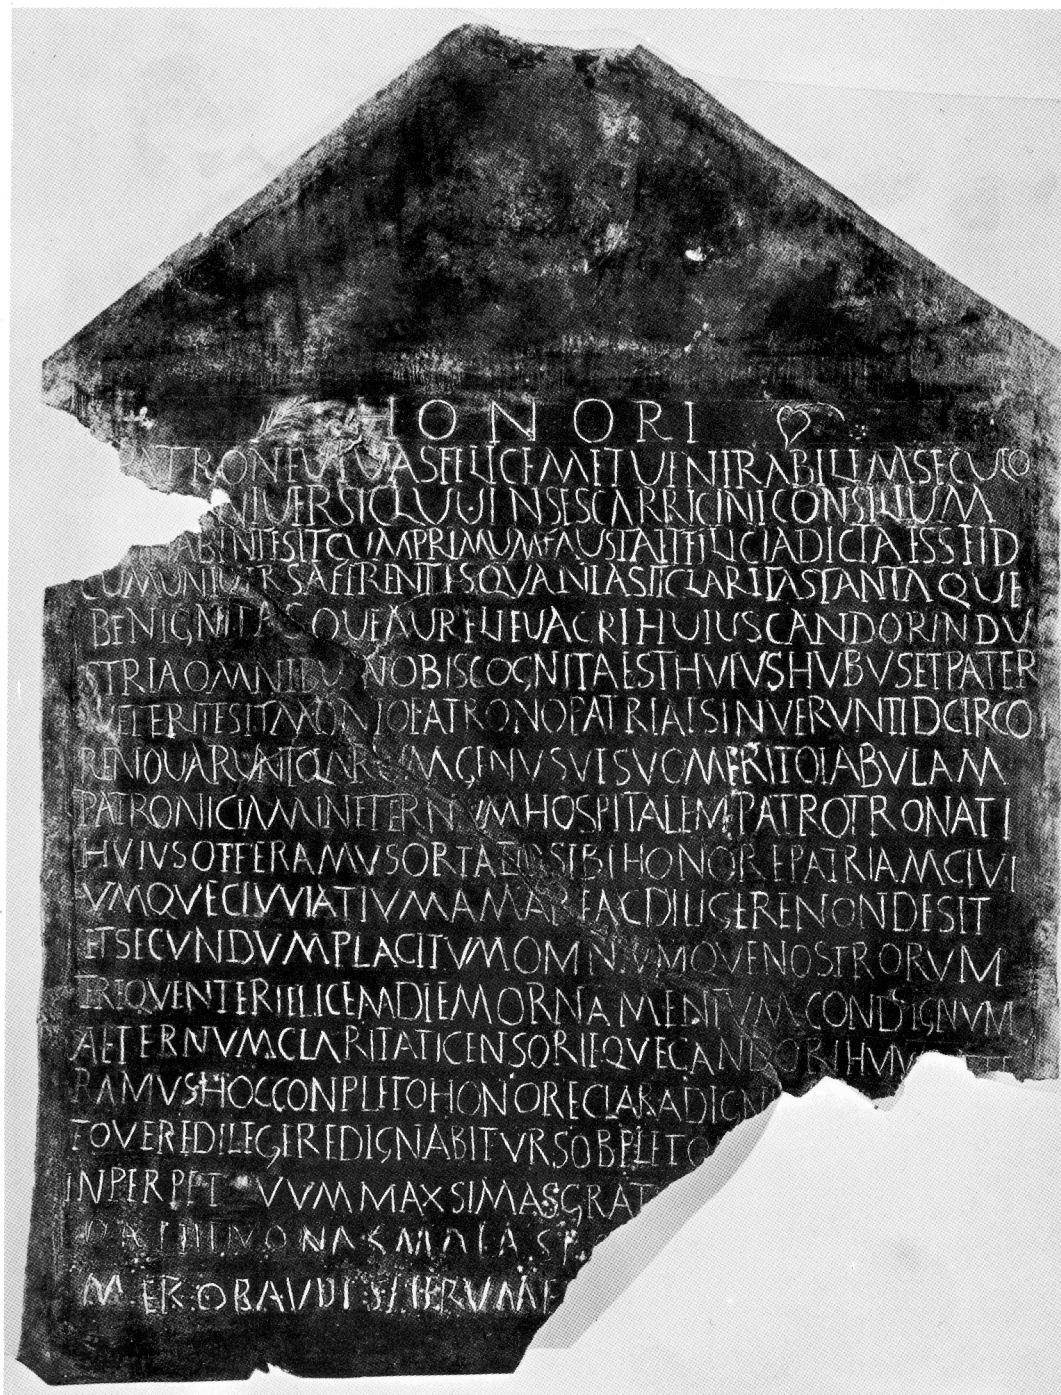 HONORI
PATRONEUTUASFELICEMETUENERABILEMSECUTO
NIUERSICLUUIENSESCARRICINICONSILIUM
HABENTESITCUMPRIMUMFAUSTAETFELICIADICTAESSEID
CUMUNIUERSAFERENTESQUANIASTECLARITASTANTAQUE
BENIGNITASQUEAURELIEUACRIHUIUSCANDORINDV
STRIAOMNIBUSANOBISCOGNITAESTHVIVSHVBVSETPATER
VETERITESTIMONIOPATRONOPATRIAESINVERVNTIDCIRCO
RENOUARUNTQARUMGENVSVISVOMERITOTABVLAM
PATRONICIAMINETERNVMHOSPITALEMPATROTRONATI
HVIVSOFFERAMVSORTATVSIBIHONOREPATRIAMCIVI
VMQVECIVVIATIVMAMAREACDILIGERENONDESIT
ETSECVNDVMPLACITVMOMNIVMQVENOSTRORVM
FREQVENTERFELICEMDIEMORNAMENTVMCONDSIGNVM
AETERNVMCLARITATICENSORIEQVECANDORIHVIV
RAMVSHOCCONPLETOHONORECLARADIGN
FOVEREDILEGEREDIGNABITVRSOBPLETO
INPERPET VVMMAXSIMASGRAT
MEROBAVDISITERVMF